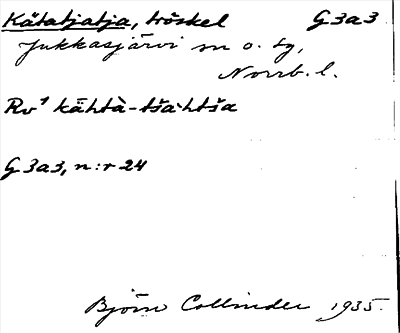 Kätatjatja, tröskel G3a3
Jukkasjärvi sn o. tg,
Norrb. l.
Rv¹ kähtà-tšà·htša
G3a3, n:r 24
Björn Collinder 1935.